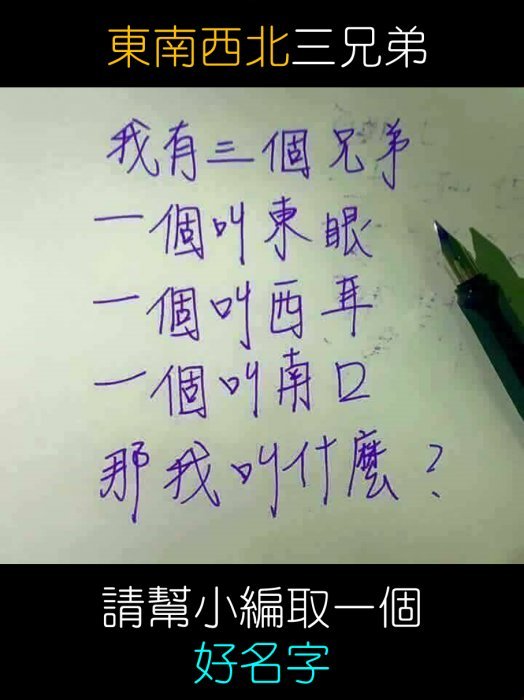 東南西北三兄弟
我有三個兄弟
一個叫東眼
一個叫西耳
一個叫南口
那我叫什麼？
請幫小編取一個
好名字